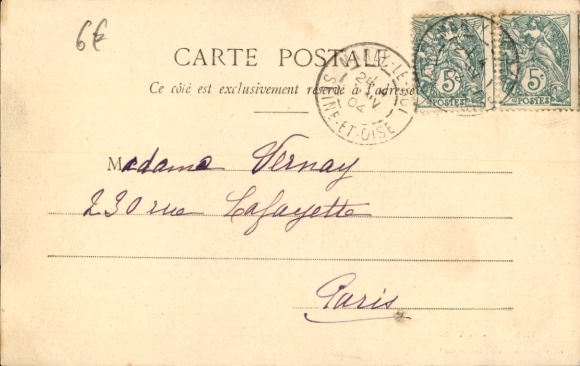 6€
CARTE POSTALE
Ce côté est exclusivement réservé à l'adresse
24
04
SEINE-ET-OISE
5c
POSTES
5c
POSTES
Madame Vernay
230 rue Lafayette
Paris